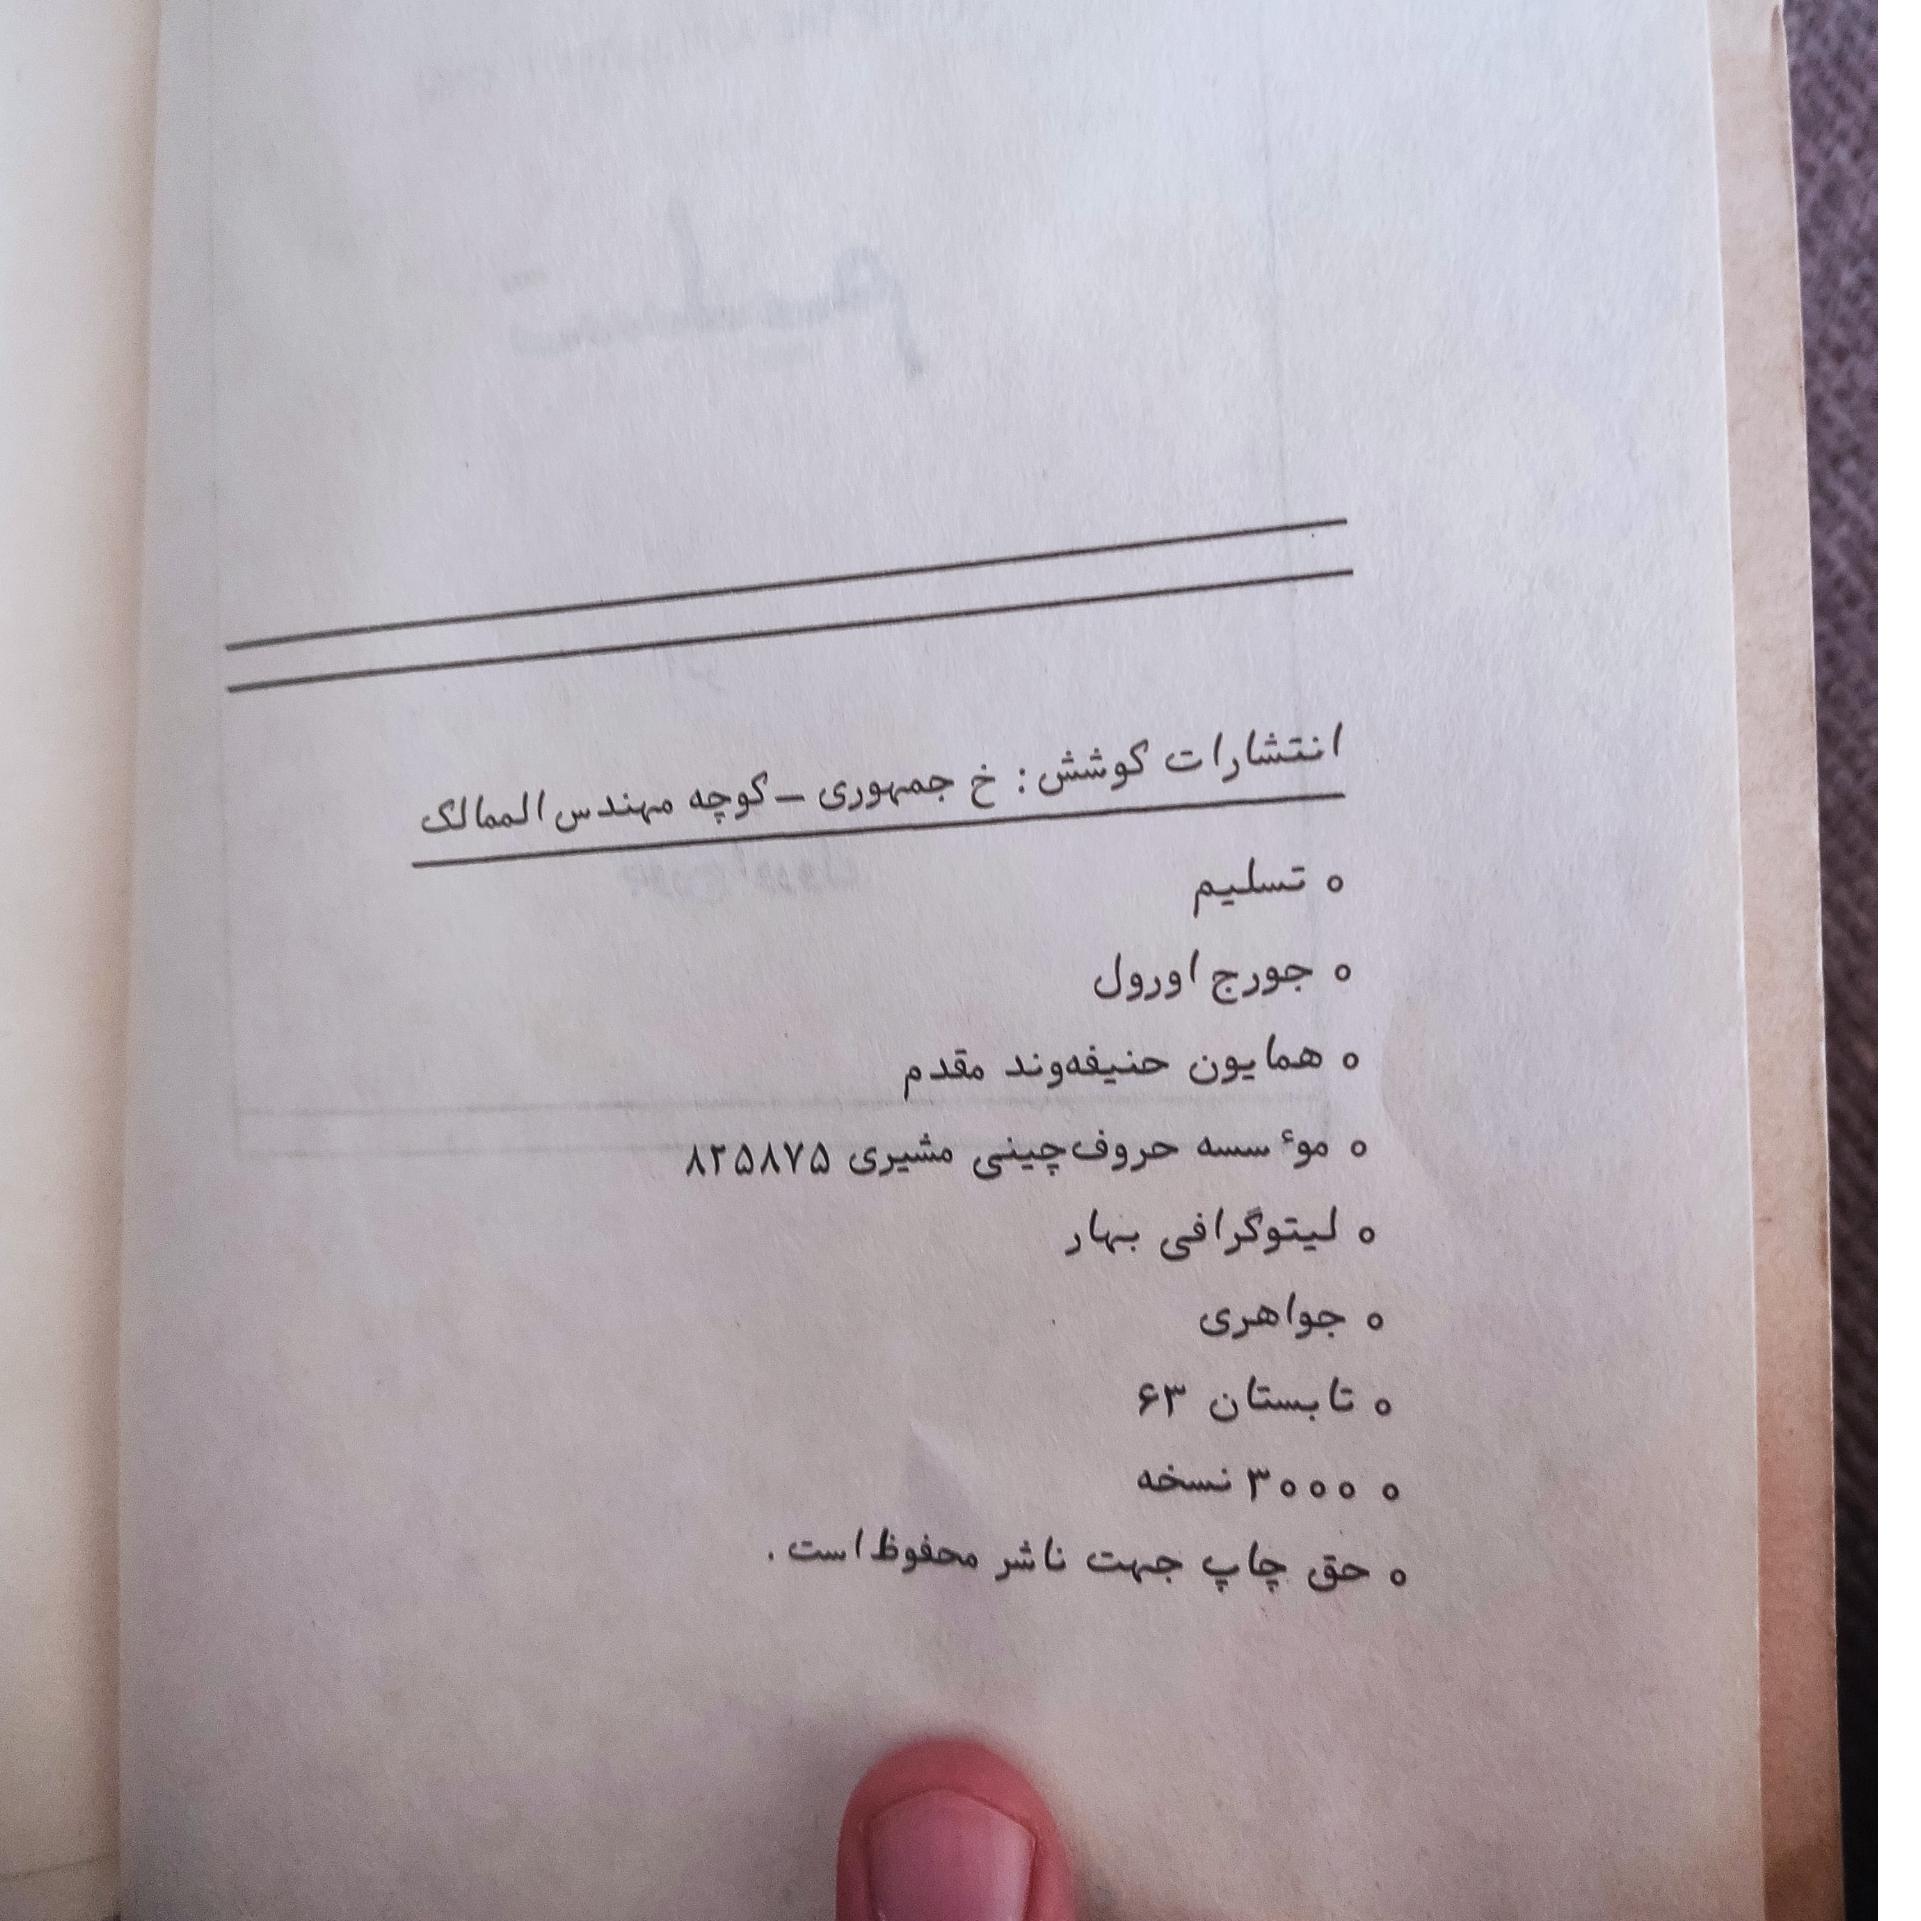 انتشارات کوشش: خ جمهوری – کوچه مهندس الممالک
o تسلیم
o جورج اورول
o همایون حنیفه‌وند مقدم
o موٴسسه حروف‌چینی مشیری ۸۲۵۸۷۵
o لیتوگرافی بهار
o جواهری
o تابستان ۶۳
o ۳۰۰۰ نسخه
o حق چاپ جهت ناشر محفوظ است.